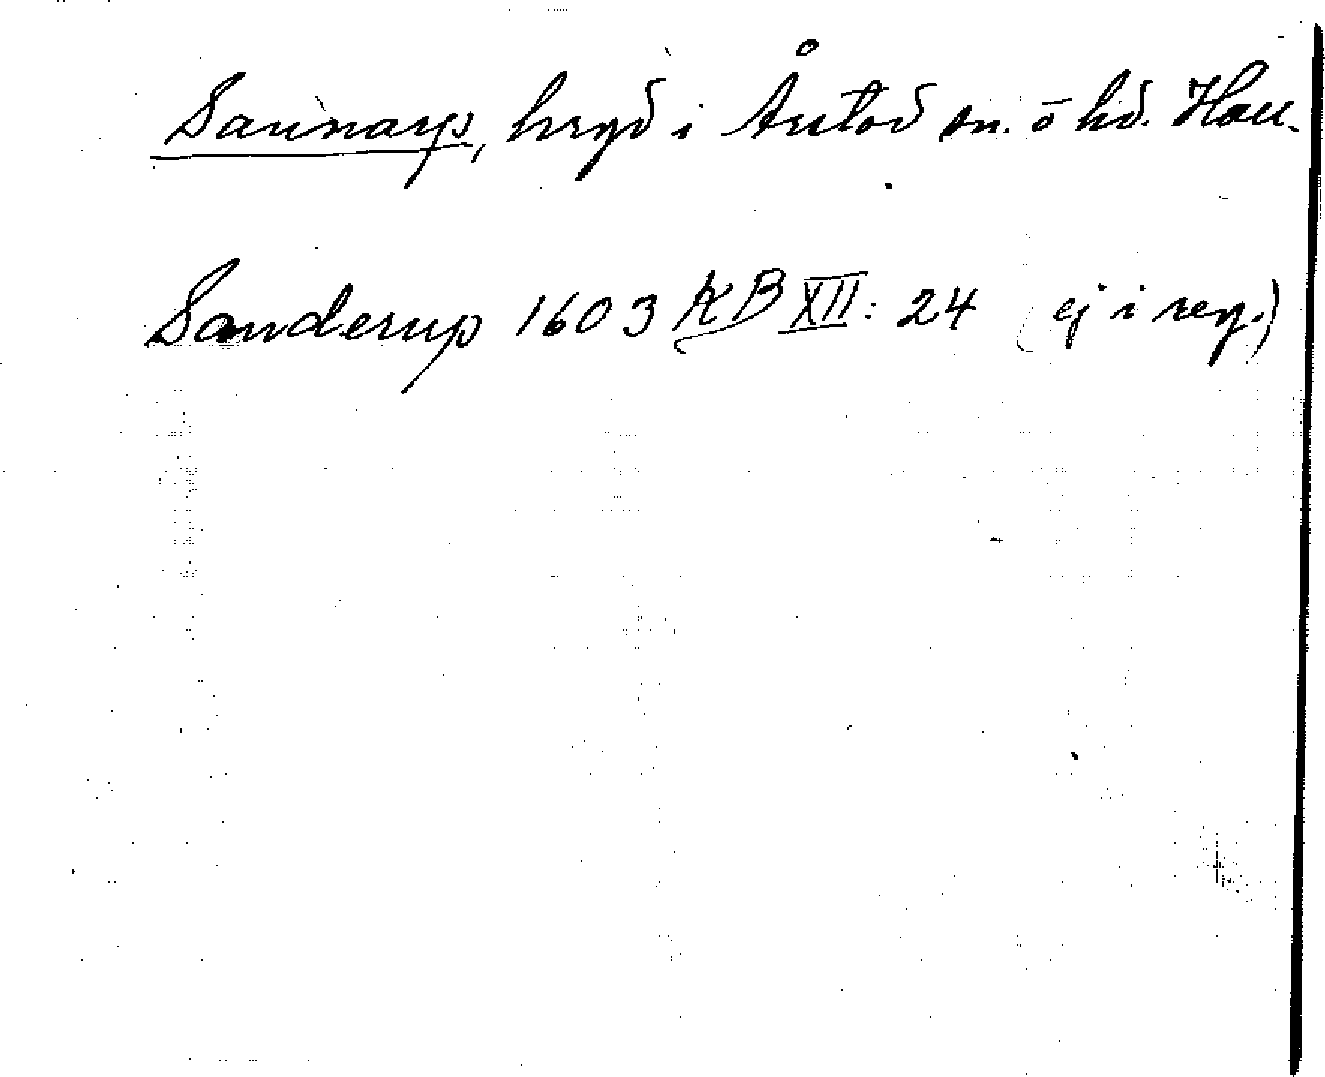 Sannarp, bygd i Årstad sn. o hd. Hall.
Sanderup 1603 KB XII: 24 (ej i reg.)